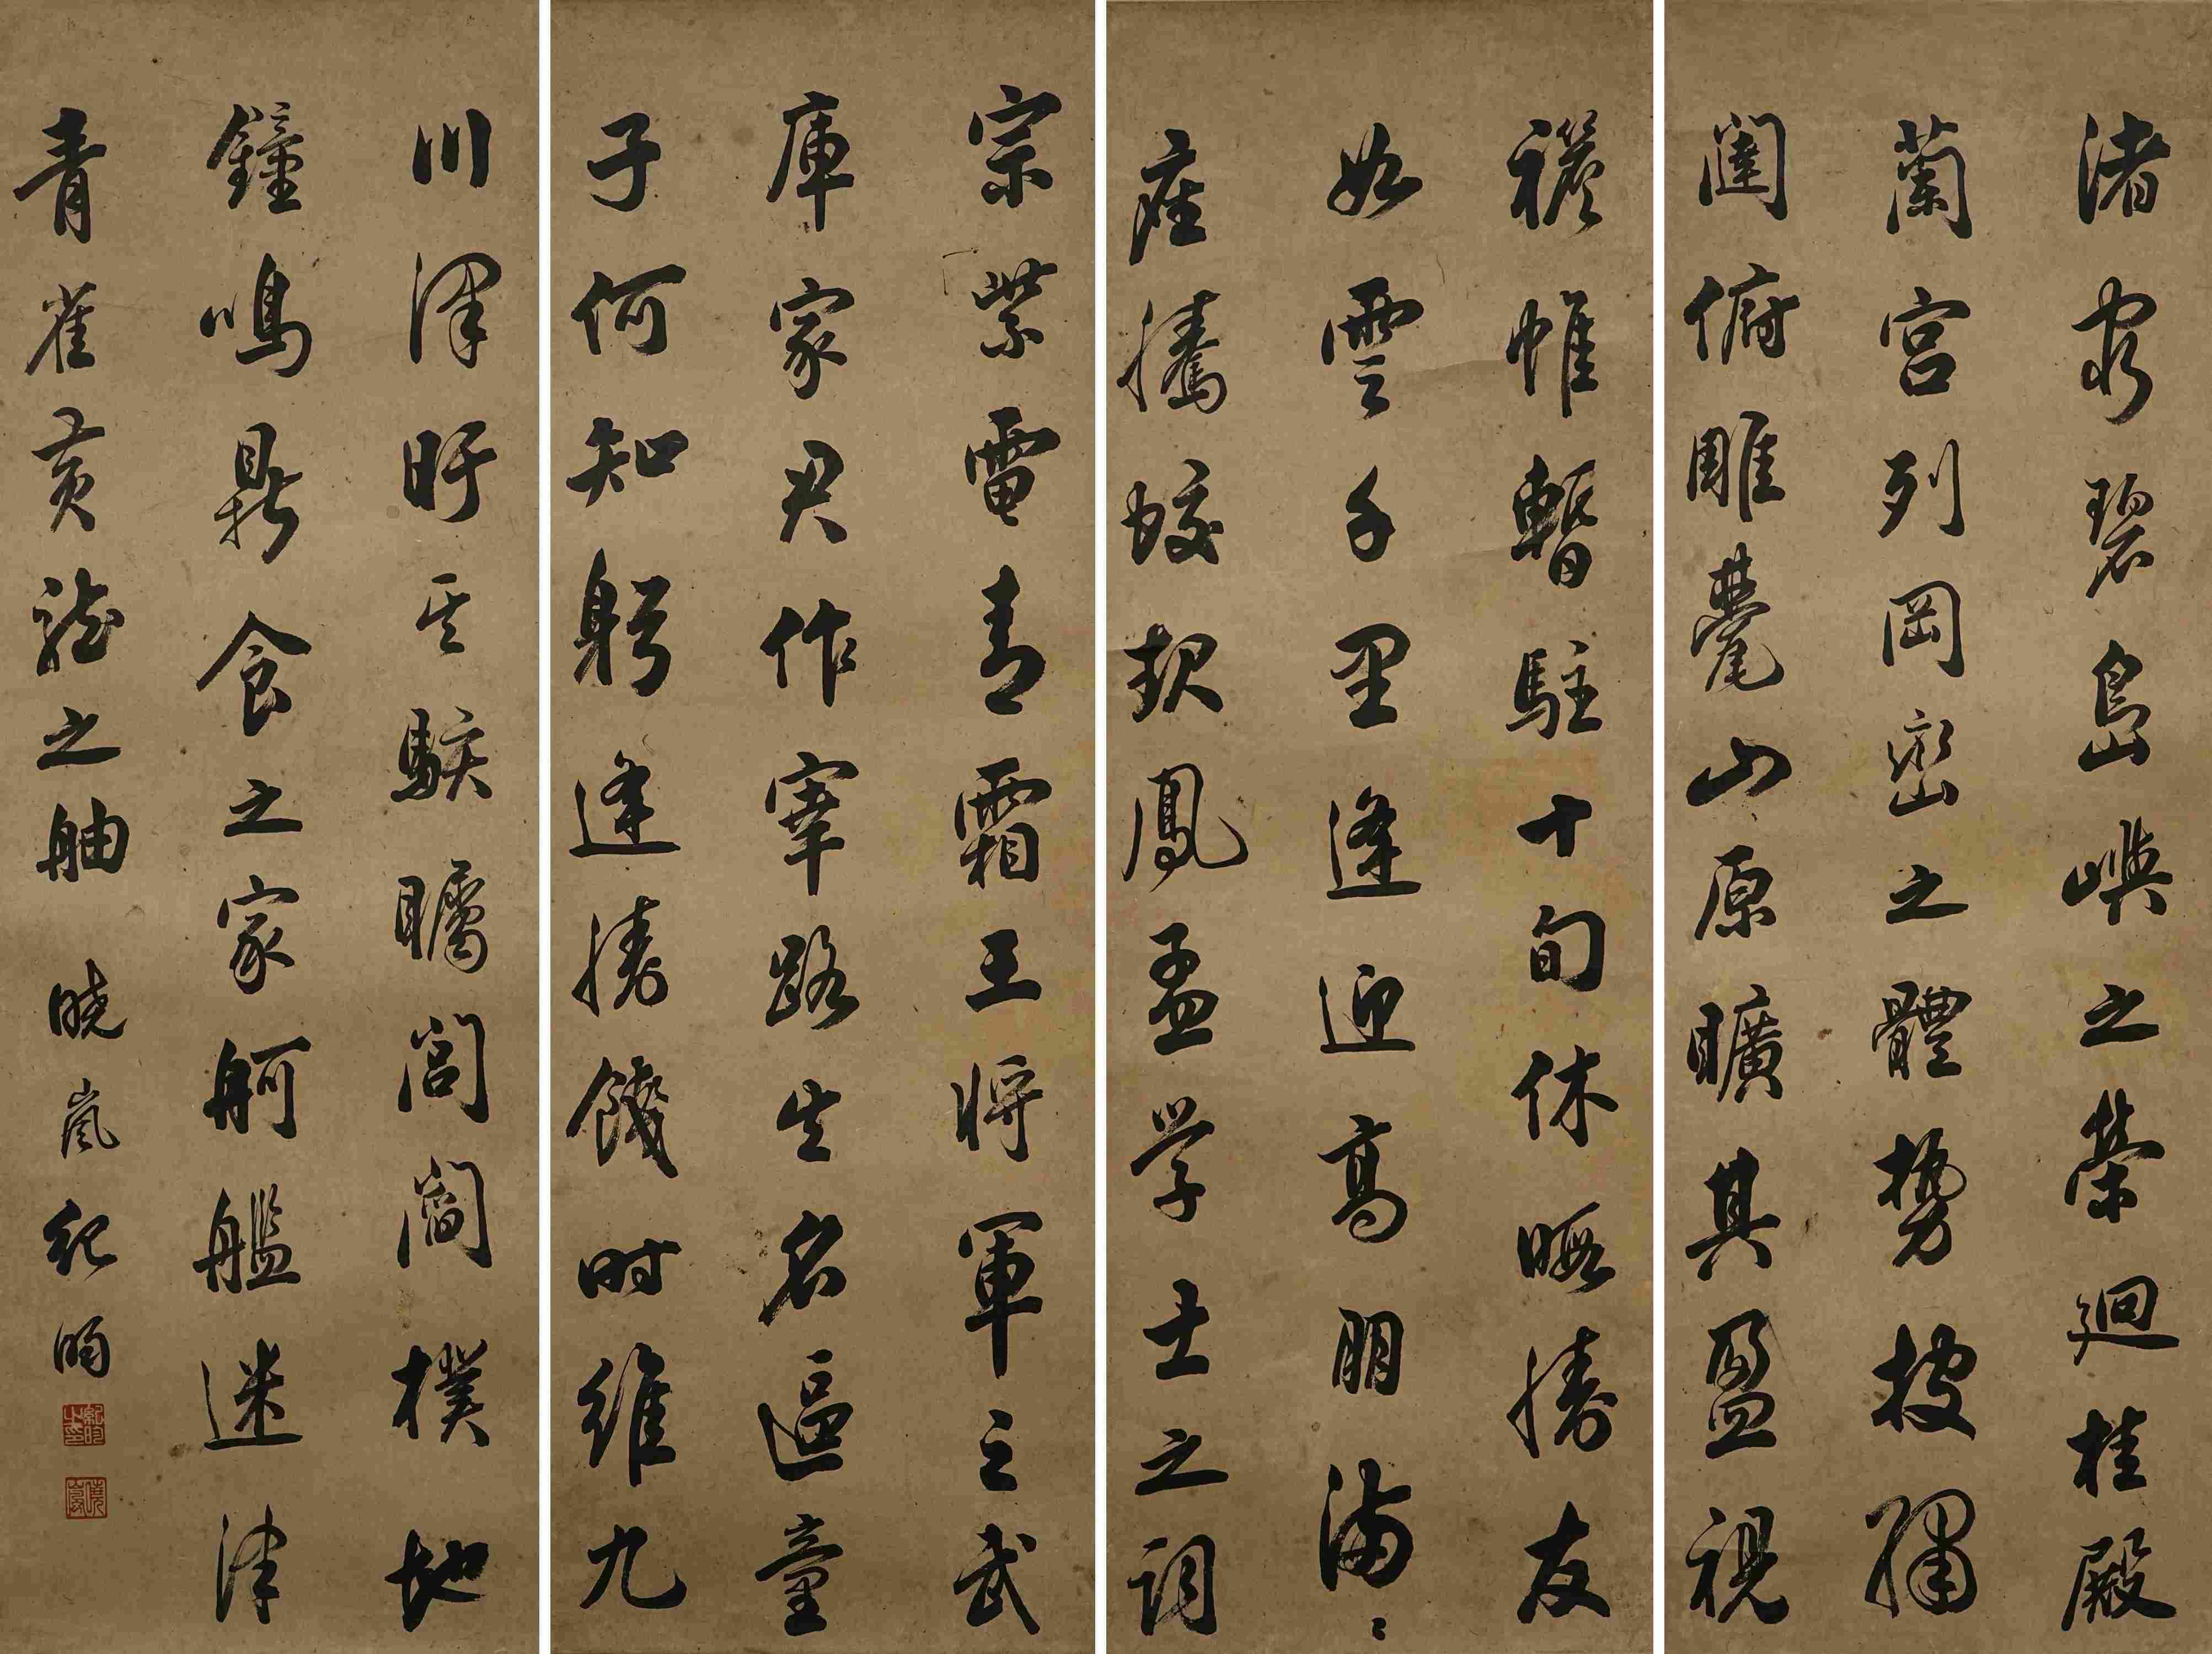 渚窮碧島嶼之縈迴桂殿
蘭宮列岡巒之體勢披繡
闥俯雕甍山原曠其盈視
襜帷暫駐十旬休暇勝友
如雲千里逢迎高朋滿〻
座騰蛟起鳳孟学士之詞
宗紫電青霜王將軍之武
庫家君作宰路出名區童
子何知躬逢勝餞时維九
川澤盱其駭矚閭閻撲地
鐘鳴鼎食之家舸艦迷津
青雀黃龍之舳 曉嵐紀昀
紀昀之印
曉嵐